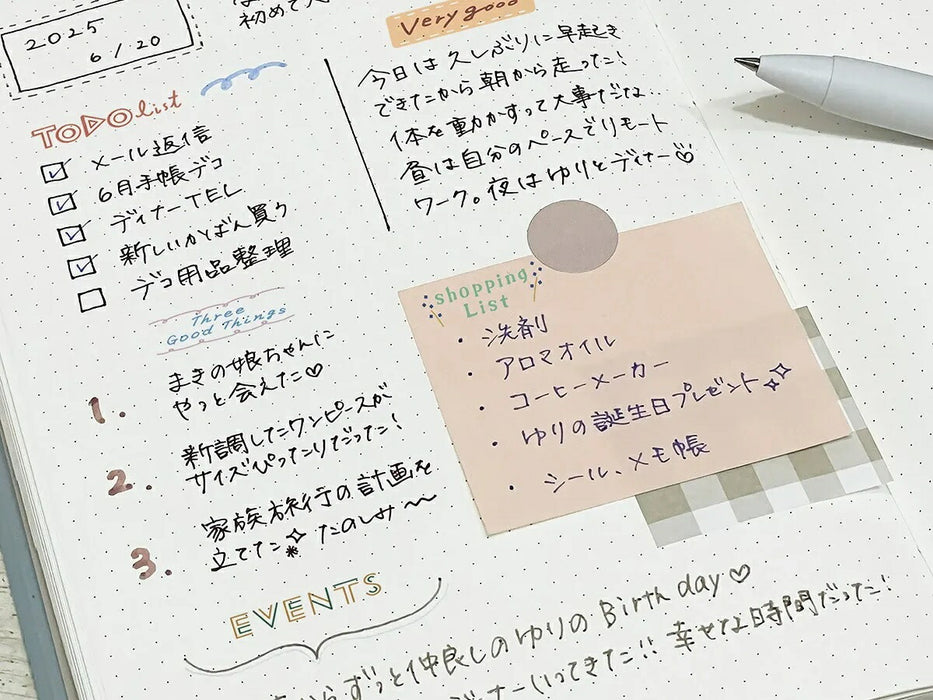 2025
6/20
初めて
TODO list
メール返信
6月手帳デコ
ディナーTEL
新しいかばん買う
デコ用品整理
Three
Good Things
1. まきの娘ちゃんに
やっと会えた♡
2. 新調したワンピースが
サイズぴったりだった!
3. 家族旅行の計画を
立てた たのしみ〜〜
Very good
今日は久しぶりに早起き
できたから朝から走った!
体を動かすって大事だな..
昼は自分のペースでリモート
ワーク。夜はゆりとディナー♡
shopping
List
・洗剤
・アロマオイル
・コーヒーメーカー
・ゆりの誕生日プレゼント
・シール、メモ帳
EVENTS
からずっと仲良しのゆりのBirthday♡
ディナーいってきた!! 幸せな時間だった!